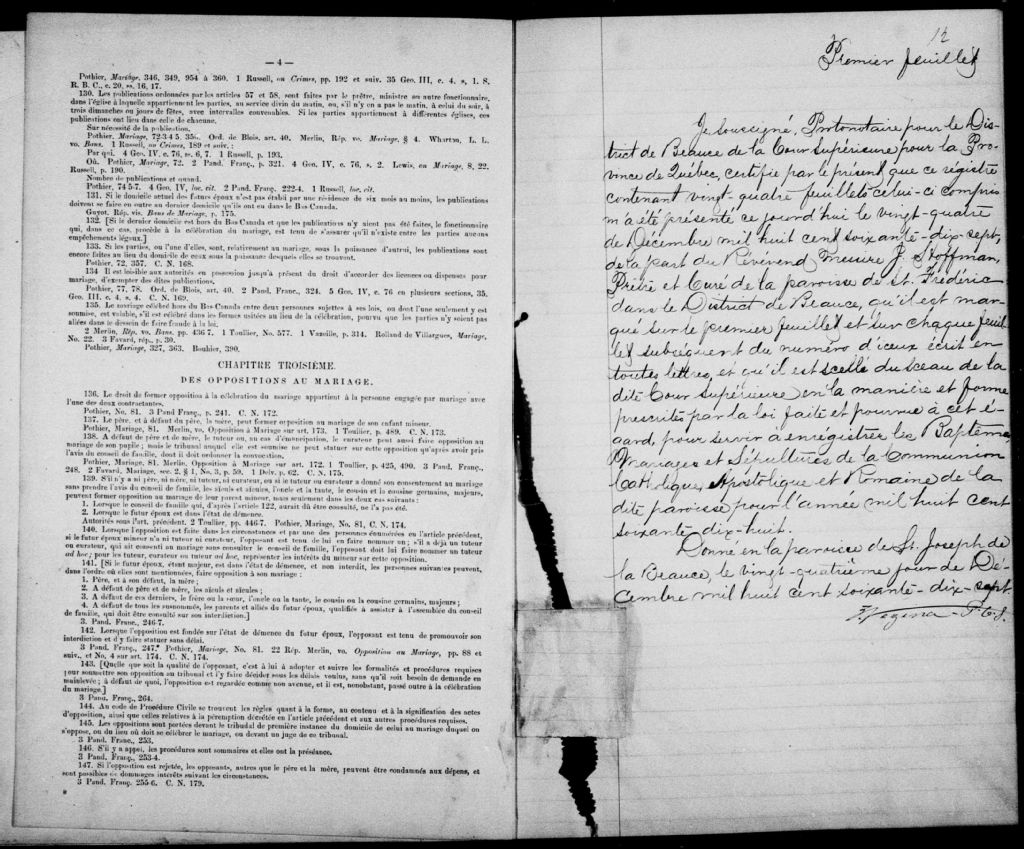 — 4 —
Pothier, Mariage, 346, 349, 954 à 360. 1 Russell, on Crimes, pp. 192 et suiv. 35 Geo. III, c. 4, s. 1. S.
R. B. C., c. 20, ss. 16, 17.
130. Les publications ordonnées par les articles 57 et 58, sont faites par le prêtre, ministre ou autre fonctionnaire,
dans l'église à laquelle appartiennent les parties, au service divin du matin, ou, s'il n'y en a pas le matin, à celui du soir, à
trois dimanches ou jours de fêtes, avec intervalles convenables. Si les parties appartiennent à différentes églises, ces
publications ont lieu dans celle de chacune.
Sur nécessité de la publication.
Pothier, Mariage, 72-3-4 5. Ord. de Blois, art. 40. Merlin, Rép. vo. Mariage, § 4. Wharton, L. L.
vo. Bans. 1 Russell, on Crimes, 189 et suiv. ;
Par qui. 4 Geo. IV, c. 76, ss. 6, 7. 1 Russell, p. 193.
Où. Pothier, Mariage, 72. 2 Pand. Franç., p. 321. 4 Geo. IV, c. 76, s. 2. Lewis, on Mariage, 8, 22.
Russell, p. 190.
Nombre de publications et quand.
Pothier, 74 5-7. 4 Geo. IV, loc. cit. 2 Pand. Franç. 222-4. 1 Russell, loc. cit.
131. Si le domicile actuel des futurs époux n'est pas établi par une résidence de six mois au moins, les publications
doivent se faire en outre au dernier domicile qu'ils ont eu dans le Bas Canada.
Guyot. Rép. vis. Bans de Mariage, p. 175.
132. [Si le dernier domicile est hors du Bas Canada et que les publications n'y aient pas été faites, le fonctionnaire
qui, dans ce cas, procède à la célébration du mariage, est tenu de s'assurer qu'il n'existe entre les parties aucuns
empêchements légaux.]
133. Si les parties, ou l'une d'elles, sont, relativement au mariage, sous la puissance d'autrui, les publications sont
encore faites au lieu du domicile de ceux sous la puissance desquels elles se trouvent.
Pothier, 72, 357. C. N. 168.
134 Il est loisible aux autorités en possession jusqu'à présent du droit d'accorder des licences ou dispenses pour
mariage, d'exempter des dites publications.
Pothier, 77, 78. Ord. de Blois, art. 40. 2 Pand. Franç., 324. 5 Geo. IV, c. 76 en plusieurs sections, 35.
Geo. III, c. 4, s. 4. C. N. 169.
135. Le mariage célébré hors du Bas Canada entre deux personnes sujettes à ses lois, ou dont l'une seulement y est
soumise, est valable, s'il est célébré dans les formes usitées au lieu de la célébration, pourvu que les parties n'y soient pas
allées dans le dessein de faire fraude à la loi.
2 Merlin, Rép. vo. Bans. pp. 436 7. 1 Toullier, No. 577. 1 Vazeille, p. 314. Rolland de Villargues, Mariage,
No. 22. 3 Favard, rép., p. 30.
Pothier, Mariage, 327, 363. Bouhier, 390.
CHAPITRE TROISIÈME.
DES OPPOSITIONS AU MARIAGE.
136. Le droit de former opposition à la célébration du mariage appartient à la personne engagée par mariage avec
l'une des deux contractantes.
Pothier, No. 81. 3 Pand Franç., p. 241. C. N. 172.
137. Le père, et à défaut du père, la mère, peut former opposition au mariage de son enfant mineur.
Pothier, Mariage, 81. Merlin, vo. Opposition à Mariage sur art. 173. 1 Toullier, p. 489. C. N. 173.
138. A défaut de père et de mère, le tuteur ou, au cas d'émancipation, le curateur peut aussi faire opposition au
mariage de son pupille ; mais le tribunal auquel elle est soumise ne peut statuer sur cette opposition qu'après avoir pris
l'avis du conseil de famille, dont il doit ordonner la convocation.
Pothier, Mariage, 81. Merlin, Opposition à Mariage sur art. 172. 1 Toullier, p. 425, 490. 3 Pand. Franç.,
248. 2 Favard, Mariage, sec. 2, § 1, No. 3, p. 59. 1 Delv. p. 62. C. N. 175.
139. S'il n'y a ni père, ni mère, ni tuteur, ni curateur, ou si le tuteur ou curateur a donné son consentement au mariage
sans prendre l'avis du conseil de famille, les aïeuls et aïeules, l'oncle et la tante, le cousin et la cousine germains, majeurs,
peuvent former opposition au mariage de leur parent mineur, mais seulement dans les deux cas suivants :
1. Lorsque le conseil de famille qui, d'après l'article 122, aurait dû être consulté, ne l'a pas été.
2. Lorsque le futur époux est dans l'état de démence.
Autorités sous l'art. précédent. 2 Toullier, pp. 446-7. Pothier, Mariage, No. 81, C. N. 174.
140. Lorsque l'opposition est faite dans les circonstances et par une des personnes énumérées en l'article précédent,
si le futur époux mineur n'a ni tuteur ni curateur, l'opposant est tenu de lui en faire nommer un ; s'il a déjà un tuteur
ou curateur, qui ait consenti au mariage sans consulter le conseil de famille, l'opposant doit lui faire nommer un tuteur
ad hoc ; pour les tuteur, curateur ou tuteur ad hoc, représenter les intérêts du mineur sur cette opposition.
141. [Si le futur époux, étant majeur, est dans l'état de démence, et non interdit, les personnes suivantes peuvent,
dans l'ordre où elles sont mentionnées, faire opposition à son mariage :
1. Père, et à son défaut, la mère ;
2. A défaut de père et de mère, les aïeuls et aïeules ;
3. A défaut de ces derniers, le frère ou la sœur, l'oncle ou la tante, le cousin ou la cousine germains, majeurs ;
4. A défaut de tous les susnommés, les parents et alliés du futur époux, qualifiés à assister à l'assemblée du conseil
de famille, qui doit être consulté sur son interdiction.]
3. Pand. Franç., 246-7.
142. Lorsque l'opposition est fondée sur l'état de démence du futur époux, l'opposant est tenu de promouvoir son
interdiction et d'y faire statuer sans délai.
3 Pand. Franç., 247. Pothier, Mariage, No. 81. 22 Rép. Merlin, vo. Opposition au Mariage, pp. 88 et
suiv., et No. 4 sur art. 174. C. N. 174.
143. [Quelle que soit la qualité de l'opposant, c'est à lui à adopter et suivre les formalités et procédures requises
pour soumettre son opposition au tribunal et l'y faire décider sous les délais voulus, sans qu'il soit besoin de demande en
mainlevée ; à défaut de quoi, l'opposition est regardée comme non avenue, et il est, nonobstant, passé outre à la célébration
du mariage.]
3 Pand. Franç., 264.
144. Au code de Procédure Civile se trouvent les règles quant à la forme, au contenu et à la signification des actes
d'opposition, ainsi que celles relatives à la péremption décrétée en l'article précédent et aux autres procédures requises.
145. Les oppositions sont portées devant le tribunal de première instance du domicile de celui au mariage duquel on
s'oppose, ou du lieu où doit se célébrer le mariage, ou devant un juge de ce tribunal.
3 Pand. Franc., 253.
146. S'il y a appel, les procédures sont sommaires et elles ont la préséance.
3 Pand. Franc., 253-4.
147. Si l'opposition est rejetée, les opposants, autres que le père et la mère, peuvent être condamnés aux dépens, et
sont passibles de dommages intérêts suivant les circonstances.
3 Pand. Franç. 255-6. C. N. 179.
12
Premier feuillet
Je Soussigné, Protonotaire pour le Dis-
trict de Beauce de la Cour Supérieure pour la Pro-
vince de Québec, certifie par le présent que ce régistre
contenant vingt-quatre feuillets celui-ci compris
m'a été présenté ce jourd'hui le vingt-quatre
de Décembre mil huit cent soixante-dix-sept,
de la part du Révérend Messire J. Hoffman,
Prêtre et Curé de la paroisse de St. Frédéric
dans le District de Beauce, qu'il est mar-
qué sur le premier feuillet et sur chaque feuil-
let subséquent du numéro d'iceux écrit en
toutes lettres, et qu'il est scellé du sceau de la
dite Cour Supérieure en la manière et forme
prescrites par la loi faite et pourvue à cet é-
gard, pour servir à enrégistrer les Baptêmes
Mariages et Sépultures de la Communion
Catholique, Apostolique et Romaine de la
dite paroisse pour l'année mil huit cent
soixante-dix-huit.
Donné en la paroisse de St. Joseph de
la Beauce, le vingt-quatrième jour de Dé-
cembre mil huit cent soixante-dix-sept.
P. C. S.